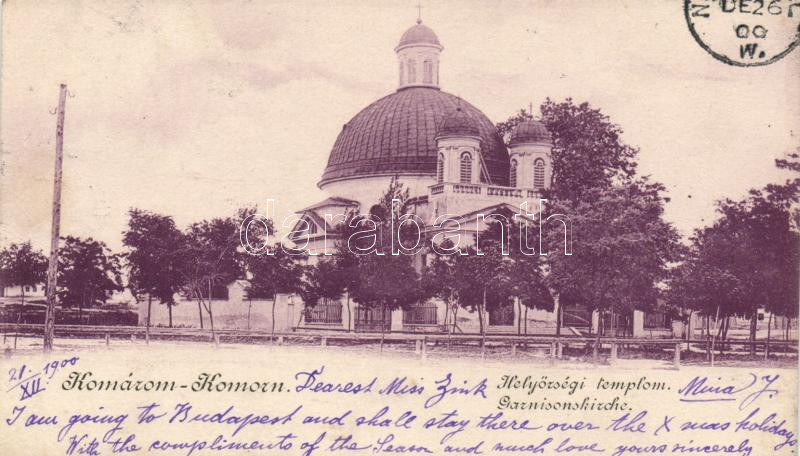 DE 26
00
W.
darabanth
21/XII 1900
Komárom-Komorn. Dearest Miss Zink Helyőrségi templom. Garnisonskirche.
I am going to Budapest and shall stay there over the X mas holidays
With the compliments of the Season and much love yours sincerely